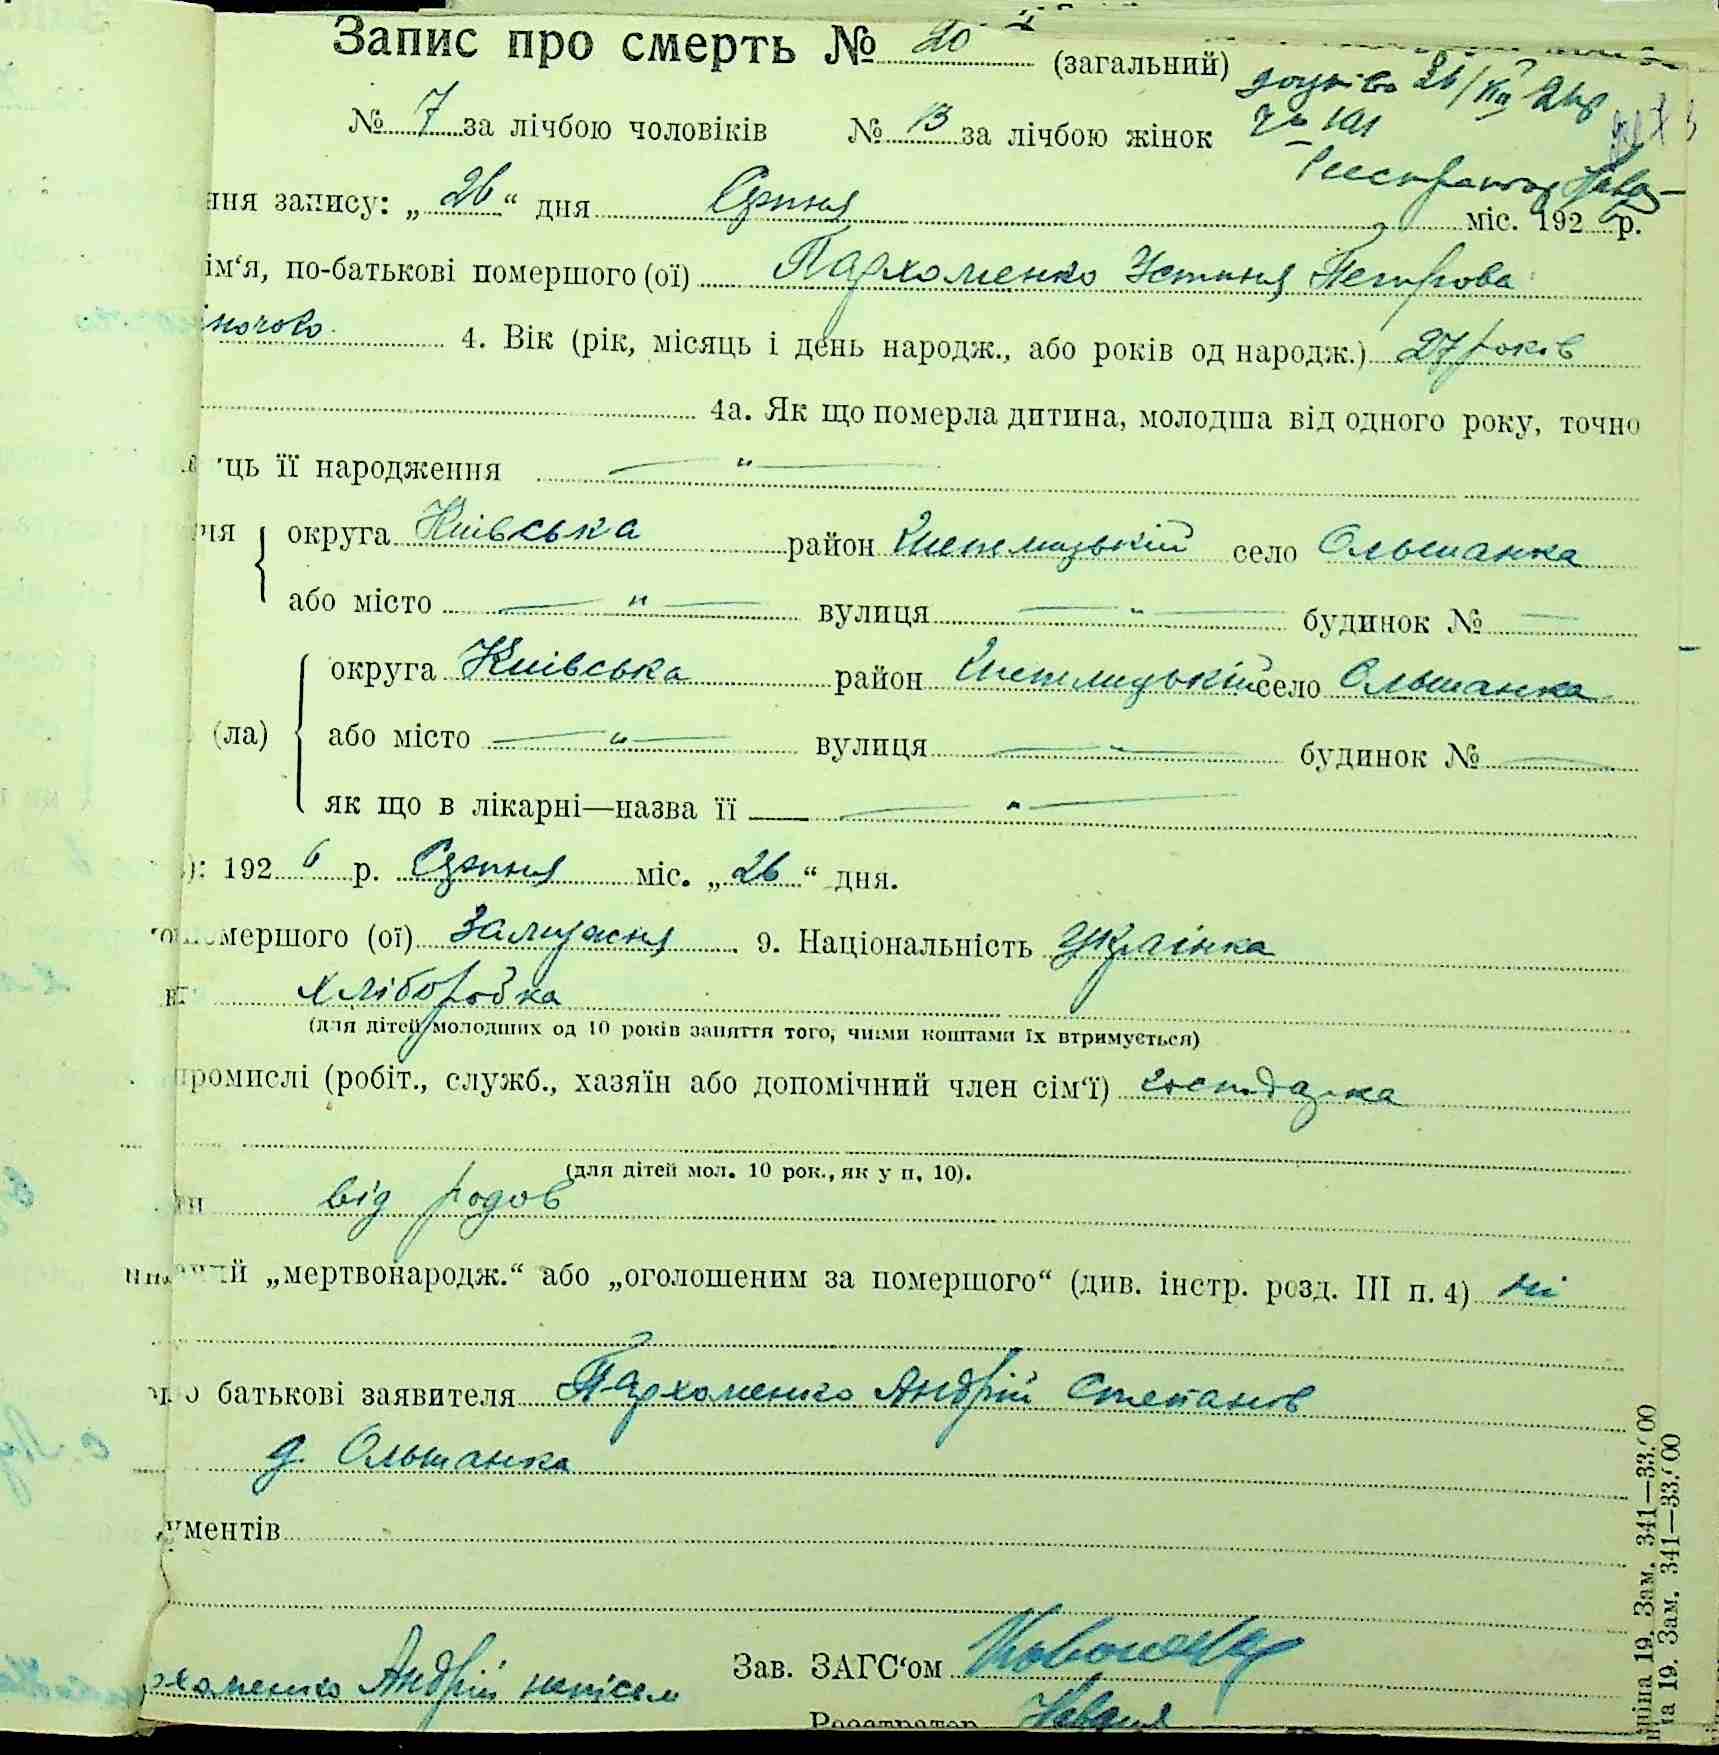 Запис про смерть № 20 (загальний)
№ 7 за лічбою чоловіків № 13 за лічбою жінок
ння запису: „26“ дня Серпня міс. 1926 р.
ім‘я, по-батькові помершого (ої) Пархоменко Устиня Петрова
іночого 4. Вік (рік, місяць і день народж., або років од народж.) 27 років
4а. Як що померла дитина, молодша від одного року, точно
ць її народження — " —
ня округа Київська район село Ольшанка
або місто — " — вулиця — " — будинок № —
округа Київська район село Ольшанка
(ла) або місто — " — вулиця — " — будинок № —
як що в лікарні—назва її — " —
): 1926 р. Серпня міс. „26“ дня.
помершого (ої) Замужня 9. Національність Українка
хліборобка
(для дітей молодших од 10 років заняття того, чиїми коштами їх втримується)
промислі (робіт., служб., хазяїн або допомічний член сім‘ї) господарка
(для дітей мол. 10 рок., як у п. 10).
ти від родов
й „мертвонародж.“ або „оголошеним за помершого“ (див. інстр. розд. III п. 4) ні
по батькові заявителя Пархоменко Андрій Степанов
д. Ольшанка
ументів
рхоменко Андрій Зав. ЗАГС‘ом
Реєстратор
19. Зам. 341—33.000
на 19. Зам. 341—33.000